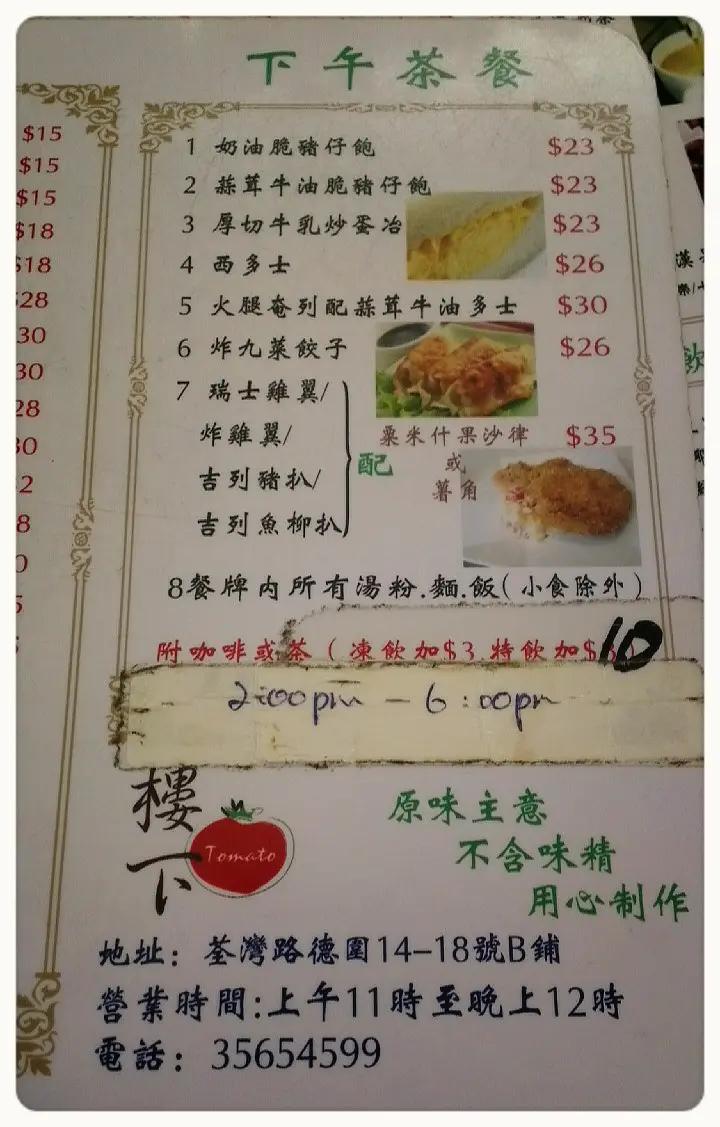 下午茶餐
$15
$15
$15
$18
$18
$28
30
30
28
30
2
8
0
5
1 奶油脆豬仔飽 $23
2 蒜茸牛油脆豬仔飽 $23
3 厚切牛乳炒蛋冶 $23
4 西多士 $26
5 火腿奄列配蒜茸牛油多士 $30
6 炸九菜餃子 $26
7 瑞士雞翼/
炸雞翼/
吉列豬扒/
吉列魚柳扒
配
粟米什果沙律 $35
或
薯角
8餐牌内所有湯.粉.麵.飯(小食除外)
附咖啡或茶(凍飲加$3 特飲加$10
2:00pm - 6:00pm
樓下
Tomato
原味主意
不含味精
用心制作
地址: 荃灣路德圍14-18號B鋪
營業時間:上午11時至晚上12時
電話: 35654599
飲